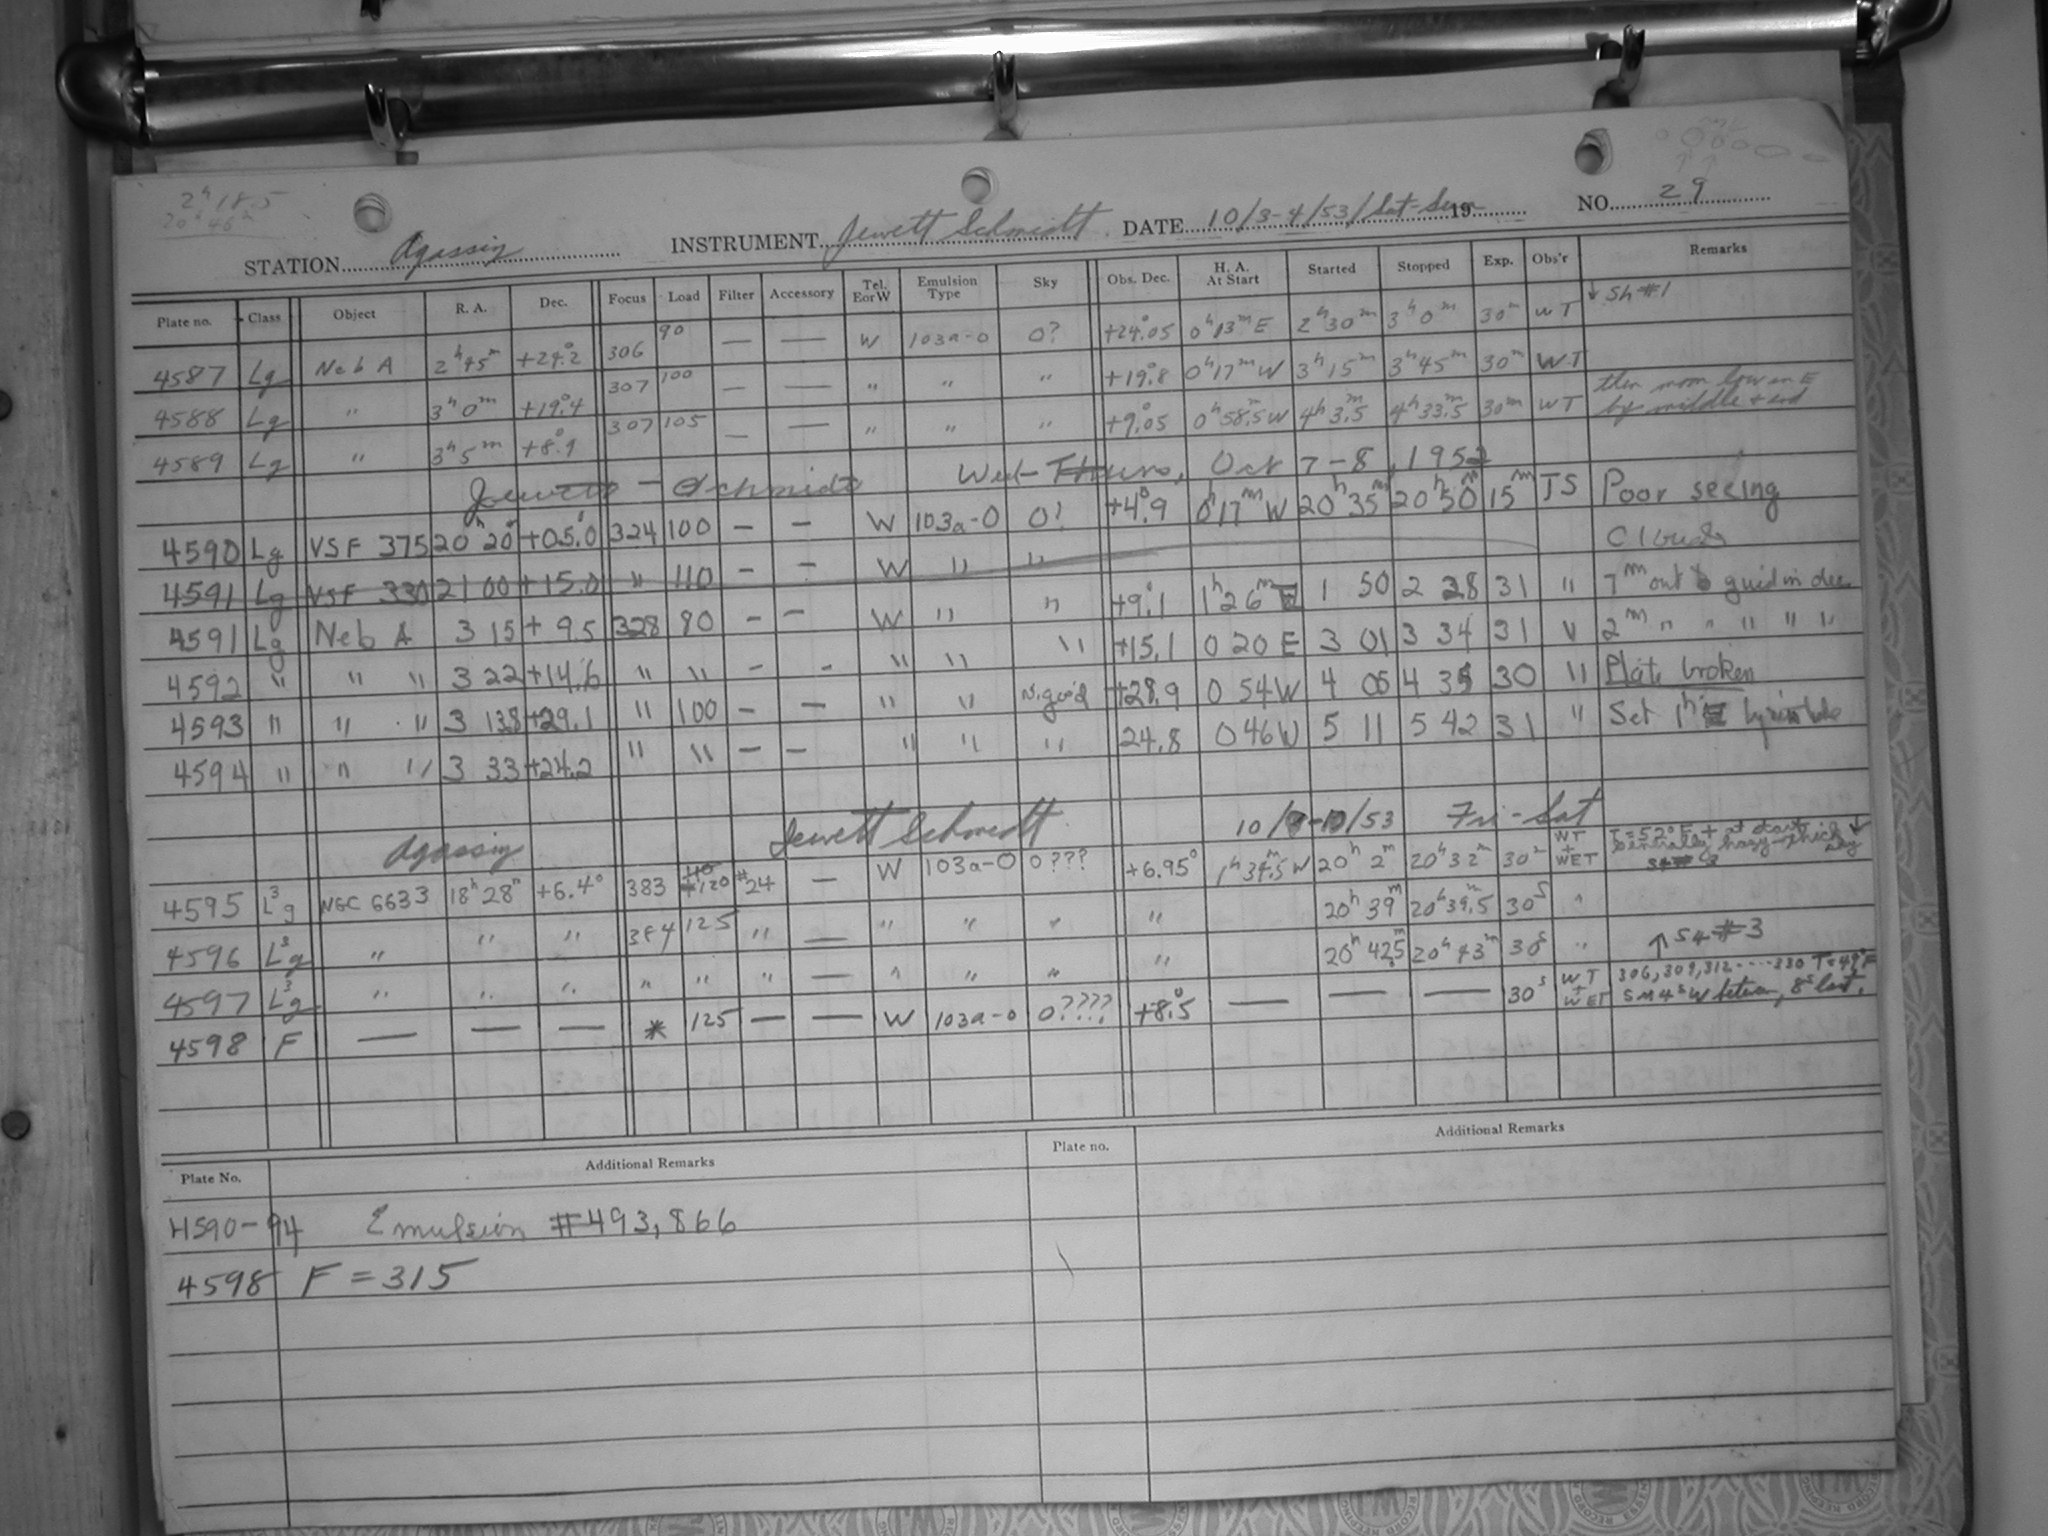 2ʰ 18.5
20ʰ 46ᵐ
STATION Agassiz INSTRUMENT Jewett Schmidt DATE 10/3-4/53/Sat-Sun 19 NO. 29
Plate no. Class Object R. A. Dec. Focus Load Filter Accessory Tel. E or W Emulsion Type Sky Obs. Dec. H. A. At Start Started Stopped Exp. Obs'r Remarks
4587 Lg Neb A 2ʰ45ᵐ +24°.2 306 90 — — W 103a-O 0? +24°.05 0ʰ13ᵐE 2ʰ30ᵐ 3ʰ0ᵐ 30ᵐ WT ↓ Sh #1
4588 Lg " 3ʰ0ᵐ +19°.4 307 100 — — " " " +19°.8 0ʰ17ᵐW 3ʰ15ᵐ 3ʰ45ᵐ 30ᵐ WT
4589 Lg " 3ʰ5ᵐ +8°.9 307 105 — — " " " +9°.05 0ʰ58.5W 4ʰ3.5ᵐ 4ʰ33.5ᵐ 30ᵐ WT then moon low in E by middle + end
Jewett - Schmidt Wed-Thurs, Oct 7-8, 1953
4590 Lg VSF 375 20ʰ20 +05.0 324 100 - - W 103a-O 0? +4°.9 0ʰ17ᵐW 20ʰ35ᵐ 20ʰ50ᵐ 15ᵐ JS Poor seeing
4591 Lg VSF 330 21 00 +15.0 " 110 - - W " " Clouds
4591 Lg Neb A 3 15 + 9.5 328 90 - - W " " +9°.1 1ʰ26ᵐE 1 50 2 28 31 " 7ᵐ out guid in dec
4592 " " " 3 22 +14.6 " " - - " " " +15.1 0 20 E 3 01 3 34 31 " 2ᵐ " " " " "
4593 " " " 3 138 +29.1 " 100 - - " " +28.9 0 54W 4 05 4 35 30 " Plate broken
4594 " " " 3 33 +24.2 " " - - " " " 24.8 0 46W 5 11 5 42 31 " Set 1ʰ
Agassiz Jewett Schmidt 10/9-10/53 Fri-Sat
4595 L³g NGC 6633 18ʰ28ᵐ +6.4° 383 110 120 #24 — W 103a-O 0??? +6.95° 1ʰ34.5ᵐW 20ʰ2ᵐ 20ʰ32ᵐ 30ᵐ WT + WET T=52°F + at start
4596 L³g " " " 384 125 " — " " " " 20ʰ39ᵐ 20ʰ39.5ᵐ 30ˢ "
4597 L³g " " " " " " — " " " " 20ʰ42.5ᵐ 20ʰ43ᵐ 30ˢ " ↑ S4 #3
4598 F — — — * 125 — — W 103a-O 0???? +8°.5 — — — 30ˢ WT + WET 306, 309, 312 ---- 330 T=49°F 4ˢ W between, 8ˢ last.
Plate No. Additional Remarks Plate no. Additional Remarks
4590-94 Emulsion #493,866
4598 F = 315